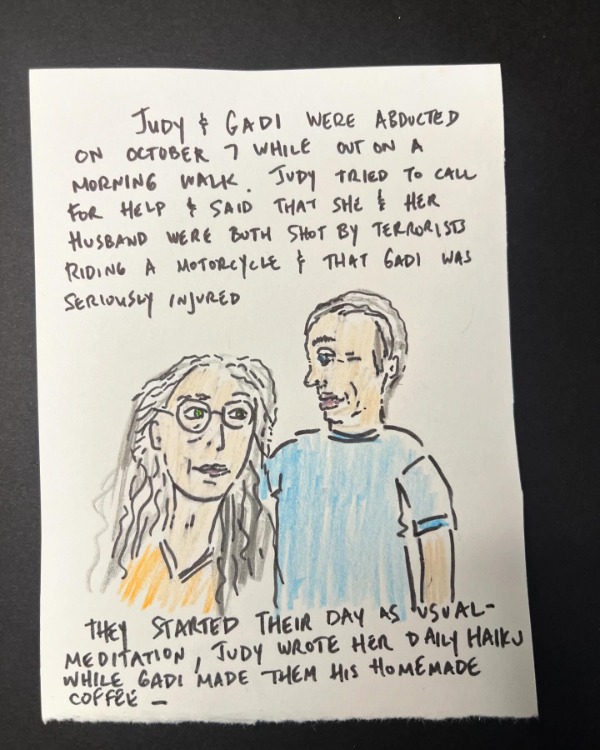 JUDY & GADI WERE ABDUCTED
ON OCTOBER 7 WHILE OUT ON A
MORNING WALK. JUDY TRIED TO CALL
FOR HELP & SAID THAT SHE & HER
HUSBAND WERE BOTH SHOT BY TERRORISTS
RIDING A MOTORCYCLE & THAT GADI WAS
SERIOUSLY INJURED
THEY STARTED THEIR DAY AS USUAL-
MEDITATION, JUDY WROTE HER DAILY HAIKU
WHILE GADI MADE THEM HIS HOMEMADE
COFFEE –